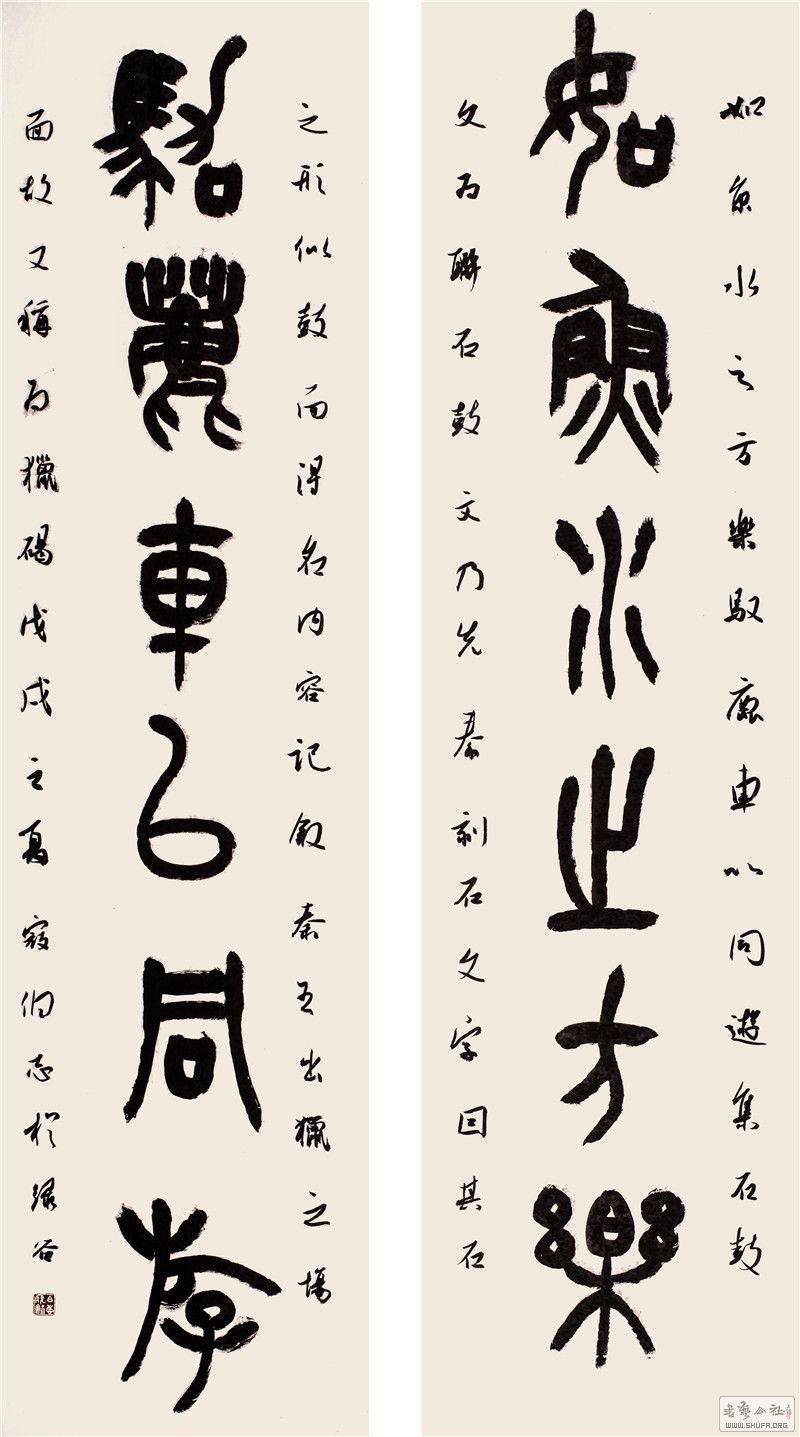 如魚水之方樂馭鹿車以同遊集石鼓
如魚水之方樂
文为聯石鼓文乃先秦刻石文字因其石
之形似鼓而得名内容記敘秦王出獵之場
馭鹿車以同游
面故又稱为獵碣戊戌之夏志於綠谷
書藝公社
WWW.SHUFA.ORG